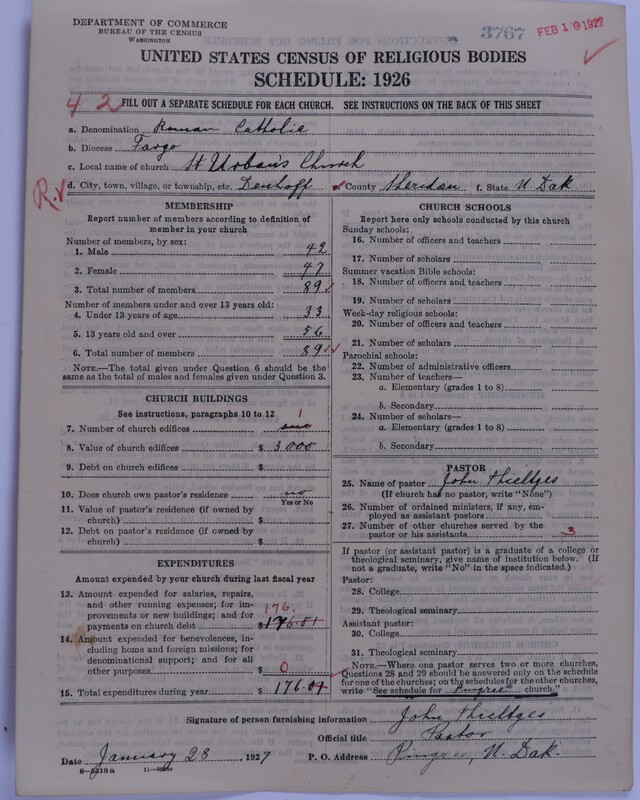 DEPARTMENT OF COMMERCE
BUREAU OF THE CENSUS
WASHINGTON
3767
FEB 10 1927
UNITED STATES CENSUS OF RELIGIOUS BODIES
SCHEDULE: 1926
4 2 FILL OUT A SEPARATE SCHEDULE FOR EACH CHURCH. SEE INSTRUCTIONS ON THE BACK OF THIS SHEET
a. Denomination Roman Catholic
b. Diocese Fargo
c. Local name of church St Urbans Church
d. City, town, village, or township, etc. Denhoff e. County Sheridan f. State N. Dak
R.V
MEMBERSHIP
Report number of members according to definition of
member in your church
Number of members, by sex:
1. Male 42
2. Female 47
3. Total number of members 89
Number of members under and over 13 years old:
4. Under 13 years of age 33
5. 13 years old and over 56
6. Total number of members 89
NOTE.—The total given under Question 6 should be
the same as the total of males and females given under Question 3.
CHURCH BUILDINGS
See instructions, paragraphs 10 to 12
1
7. Number of church edifices one
8. Value of church edifices $ 3000
9. Debt on church edifices $
10. Does church own pastor's residence no
Yes or No
11. Value of pastor's residence (if owned by
church) $
12. Debt on pastor's residence (if owned by
church) $
EXPENDITURES
Amount expended by your church during last fiscal year
13. Amount expended for salaries, repairs,
and other running expenses; for im-
provements or new buildings; and for
payments on church debt $ 176.01
176.
14. Amount expended for benevolences, in-
cluding home and foreign missions; for
denominational support; and for all
other purposes $ 0
15. Total expenditures during year $ 176.01
CHURCH SCHOOLS
Report here only schools conducted by this church
Sunday schools:
16. Number of officers and teachers
17. Number of scholars
Summer vacation Bible schools:
18. Number of officers and teachers
19. Number of scholars
Week-day religious schools:
20. Number of officers and teachers
21. Number of scholars
Parochial schools:
22. Number of administrative officers
23. Number of teachers—
a. Elementary (grades 1 to 8)
b. Secondary
24. Number of scholars—
a. Elementary (grades 1 to 8)
b. Secondary
PASTOR
25. Name of pastor John Thieltges
(If church has no pastor, write "None")
26. Number of ordained ministers, if any, em-
ployed as assistant pastors
27. Number of other churches served by the
pastor or his assistants 3
If pastor (or assistant pastor) is a graduate of a college or
theological seminary, give name of institution below. (If
not a graduate, write "No" in the space indicated.)
Pastor:
28. College
29. Theological seminary
Assistant pastor:
30. College
31. Theological seminary
NOTE.—Where one pastor serves two or more churches,
Questions 28 and 29 should be answered only on the schedule
for one of the churches; on the schedules for the other churches,
write "See schedule for Pingree church."
Signature of person furnishing information John Thieltges
Official title Pastor
Date January 28, 1927 P. O. Address Pingree, N. Dak.